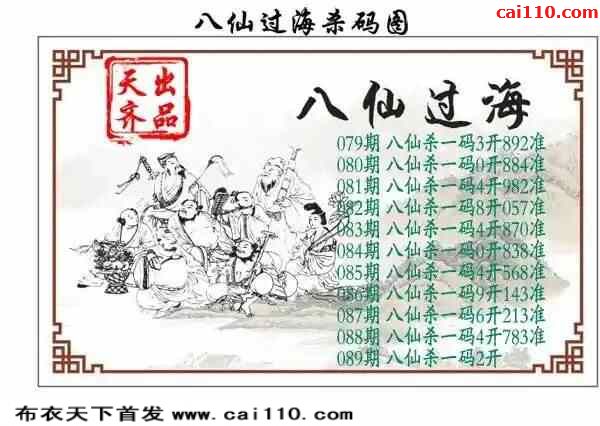 cai110.com
八仙过海杀码图
天齐
出品
八仙过海
079期 八仙杀一码3开892准
080期 八仙杀一码0开884准
081期 八仙杀一码4开982准
082期 八仙杀一码8开057准
083期 八仙杀一码4开870准
084期 八仙杀一码0开838准
085期 八仙杀一码4开568准
086期 八仙杀一码9开143准
087期 八仙杀一码6开213准
088期 八仙杀一码4开783准
089期 八仙杀一码2开
布衣天下首发 www.cai110.com